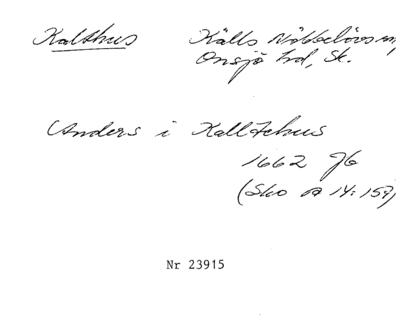 Kalthus Källs Nöbbelövs sn,
Onsjö hd, Sk.
Anders i Kalltehus
1662 Jb
(Sko A 14:157)
Nr 23915